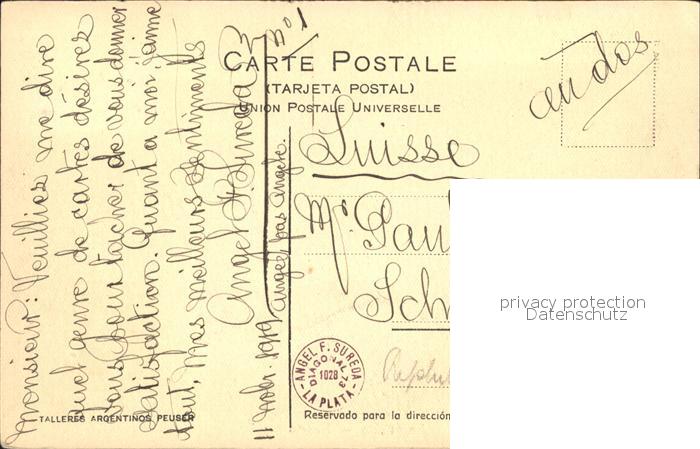 CARTE POSTALE
(TARJETA POSTAL)
UNION POSTALE UNIVERSELLE
nº 1
au dos
Monsieur: Veuillies me dire
quel genre de cartes désirez
vous pour tacher de vous donner
satisfaction. Quant a moi j'aime
tout. Mes meilleurs sentiments
Angel F. Sureda
11 nobr. 1919
Angel pas Angele.
Suisse
Mr. Paul
Sch
ANGEL F. SUREDA
DIAGONAL 73
1028
LA PLATA
TALLERES ARGENTINOS PEUSER
Reservado para la dirección
privacy protection
Datenschutz